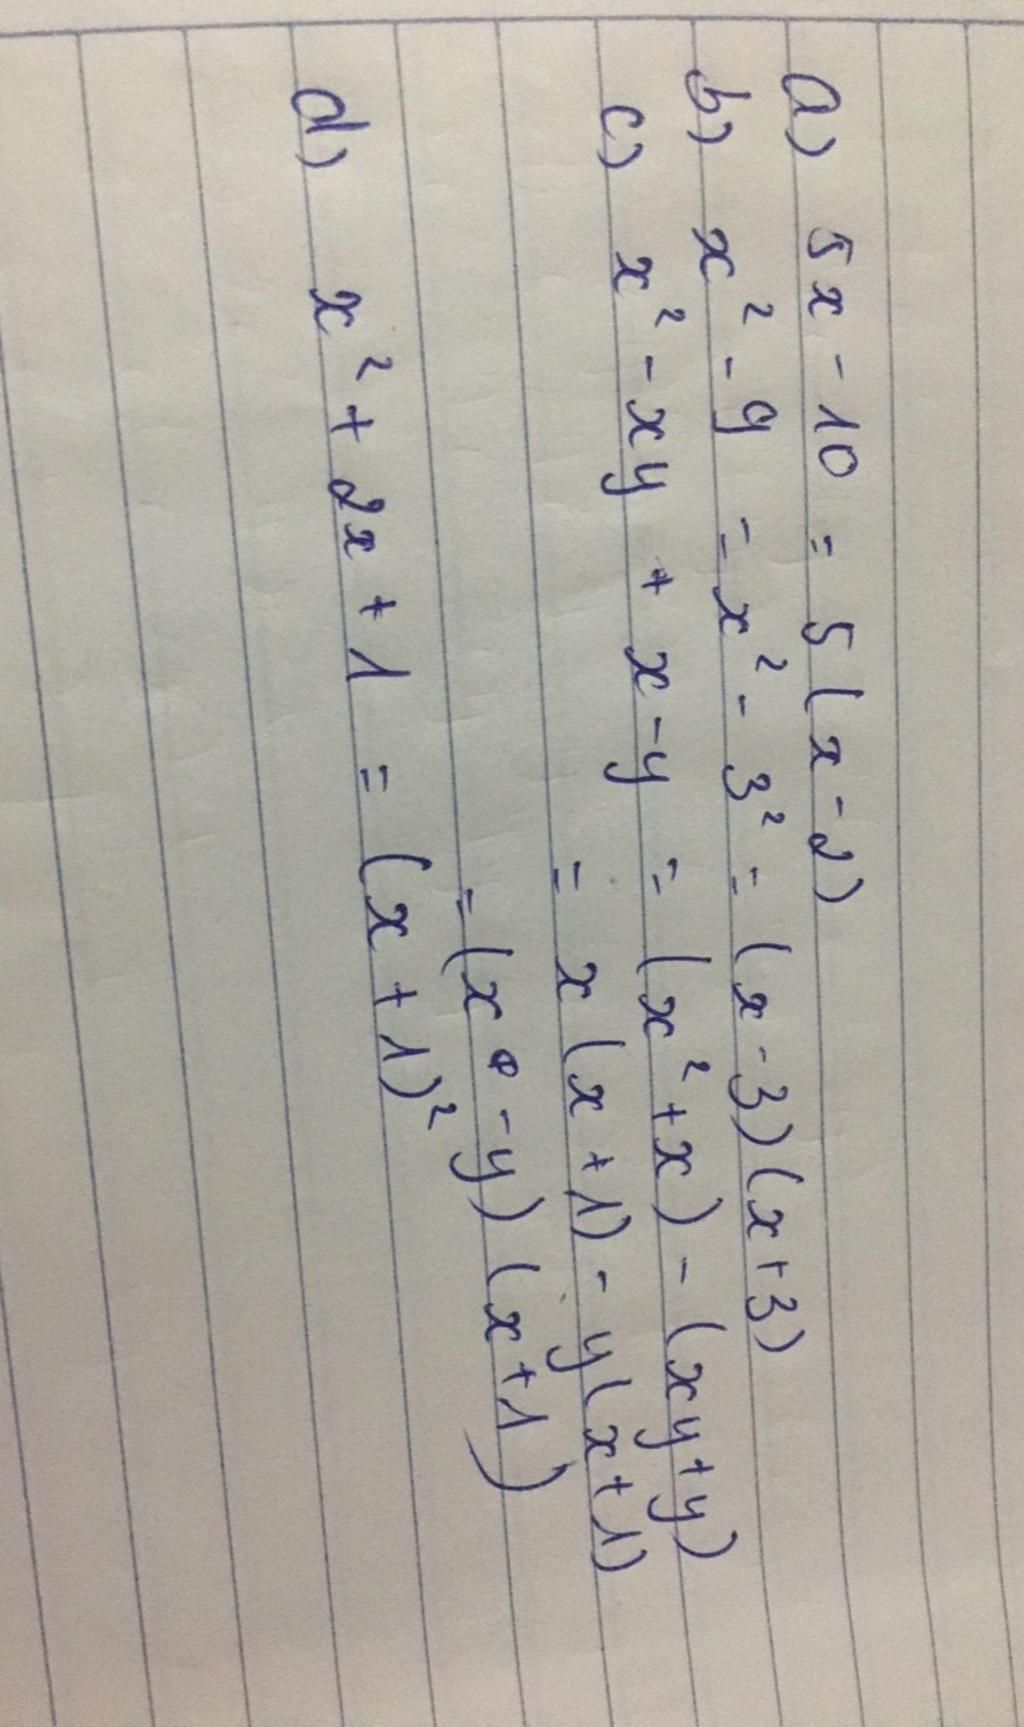 a) 5x - 10 = 5(x - 2)
b) x² - 9 = x² - 3² = (x - 3)(x + 3)
c) x² - xy + x - y = (x² + x) - (xy + y)
= x(x + 1) - y(x + 1)
= (x - y)(x + 1)
d) x² + 2x + 1 = (x + 1)²